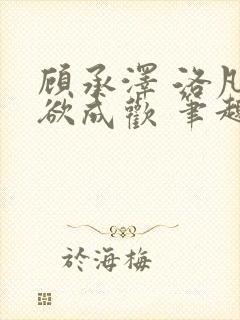 顾承澤 洛凡
欲成歡 筆趣
於海梅